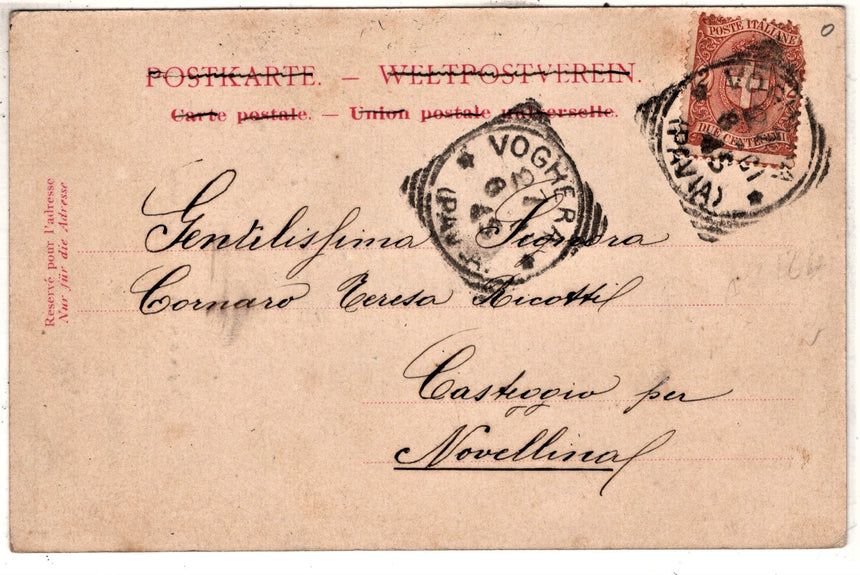 POSTKARTE. – WELTPOSTVEREIN.
Carte postale. – Union postale universelle.
POSTE ITALIANE
DUE CENTESIMI
(PAVIA)
VOGHERA
Reservé pour l'adresse
Nur für die Adresse
Gentilissima Signora
Cornaro Teresa Ricotti
Casteggio per
Novellina